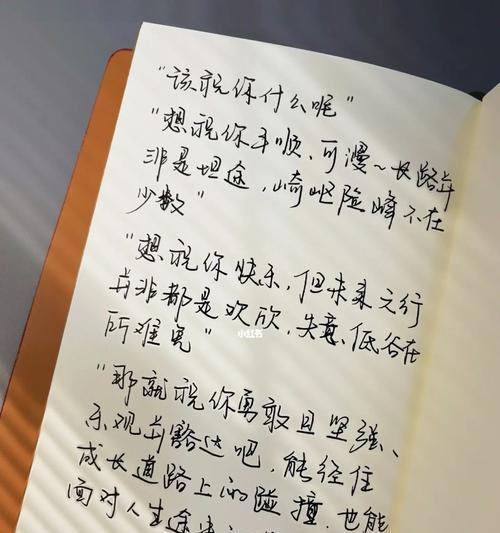 “该祝你什么呢”
“想祝你平顺,可漫~长路并
非是坦途,崎岖险峰不在
少数”
“想祝你快乐,但未来之行
并非都是欢欣,失意、低谷在
所难免”
小红书
“那就祝你勇敢且坚强、
乐观并豁达吧,能经住
成长道路上的碰撞,也能
面对人生途